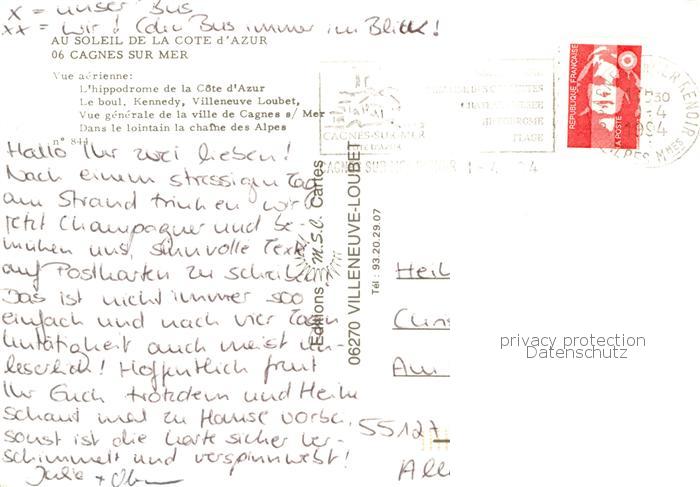 x = unser Bus
xx = wir! (den Bus immer im Blick!
AU SOLEIL DE LA COTE d'AZUR
06 CAGNES SUR MER
Vue aérienne:
L'hippodrome de la Côte d'Azur
Le boul. Kennedy, Villeneuve Loubet,
Vue générale de la ville de Cagnes s/ Mer
Dans le lointain la chaîne des Alpes
n° 844
Hallo Ihr zwei lieben!
Nach einem stressigen Tag
am Strand trinken wir
jetzt Champagner und be-
mühen uns, sinnvolle Texte
auf Postkarten zu schreiben.
Das ist nicht immer soo
einfach und nach vier Tagen
Untätigkeit auch meist un-
leserlich! Hoffentlich freut
Ihr Euch trotzdem und Heike
schaut mal zu Hause vorbei,
sonst ist die Karte sicher ver-
schimmelt und verspinnwebt!
Julia +
Editions M.S.C. Cartes
06270 VILLENEUVE-LOUBET
Tél : 93.20.29.07
CAGNES-SUR-MER
HIPPODROME
PLAGE
1-4
REPUBLIQUE FRANÇAISE
LA POSTE
1994
Heik
Am
55127
privacy protection
Datenschutz